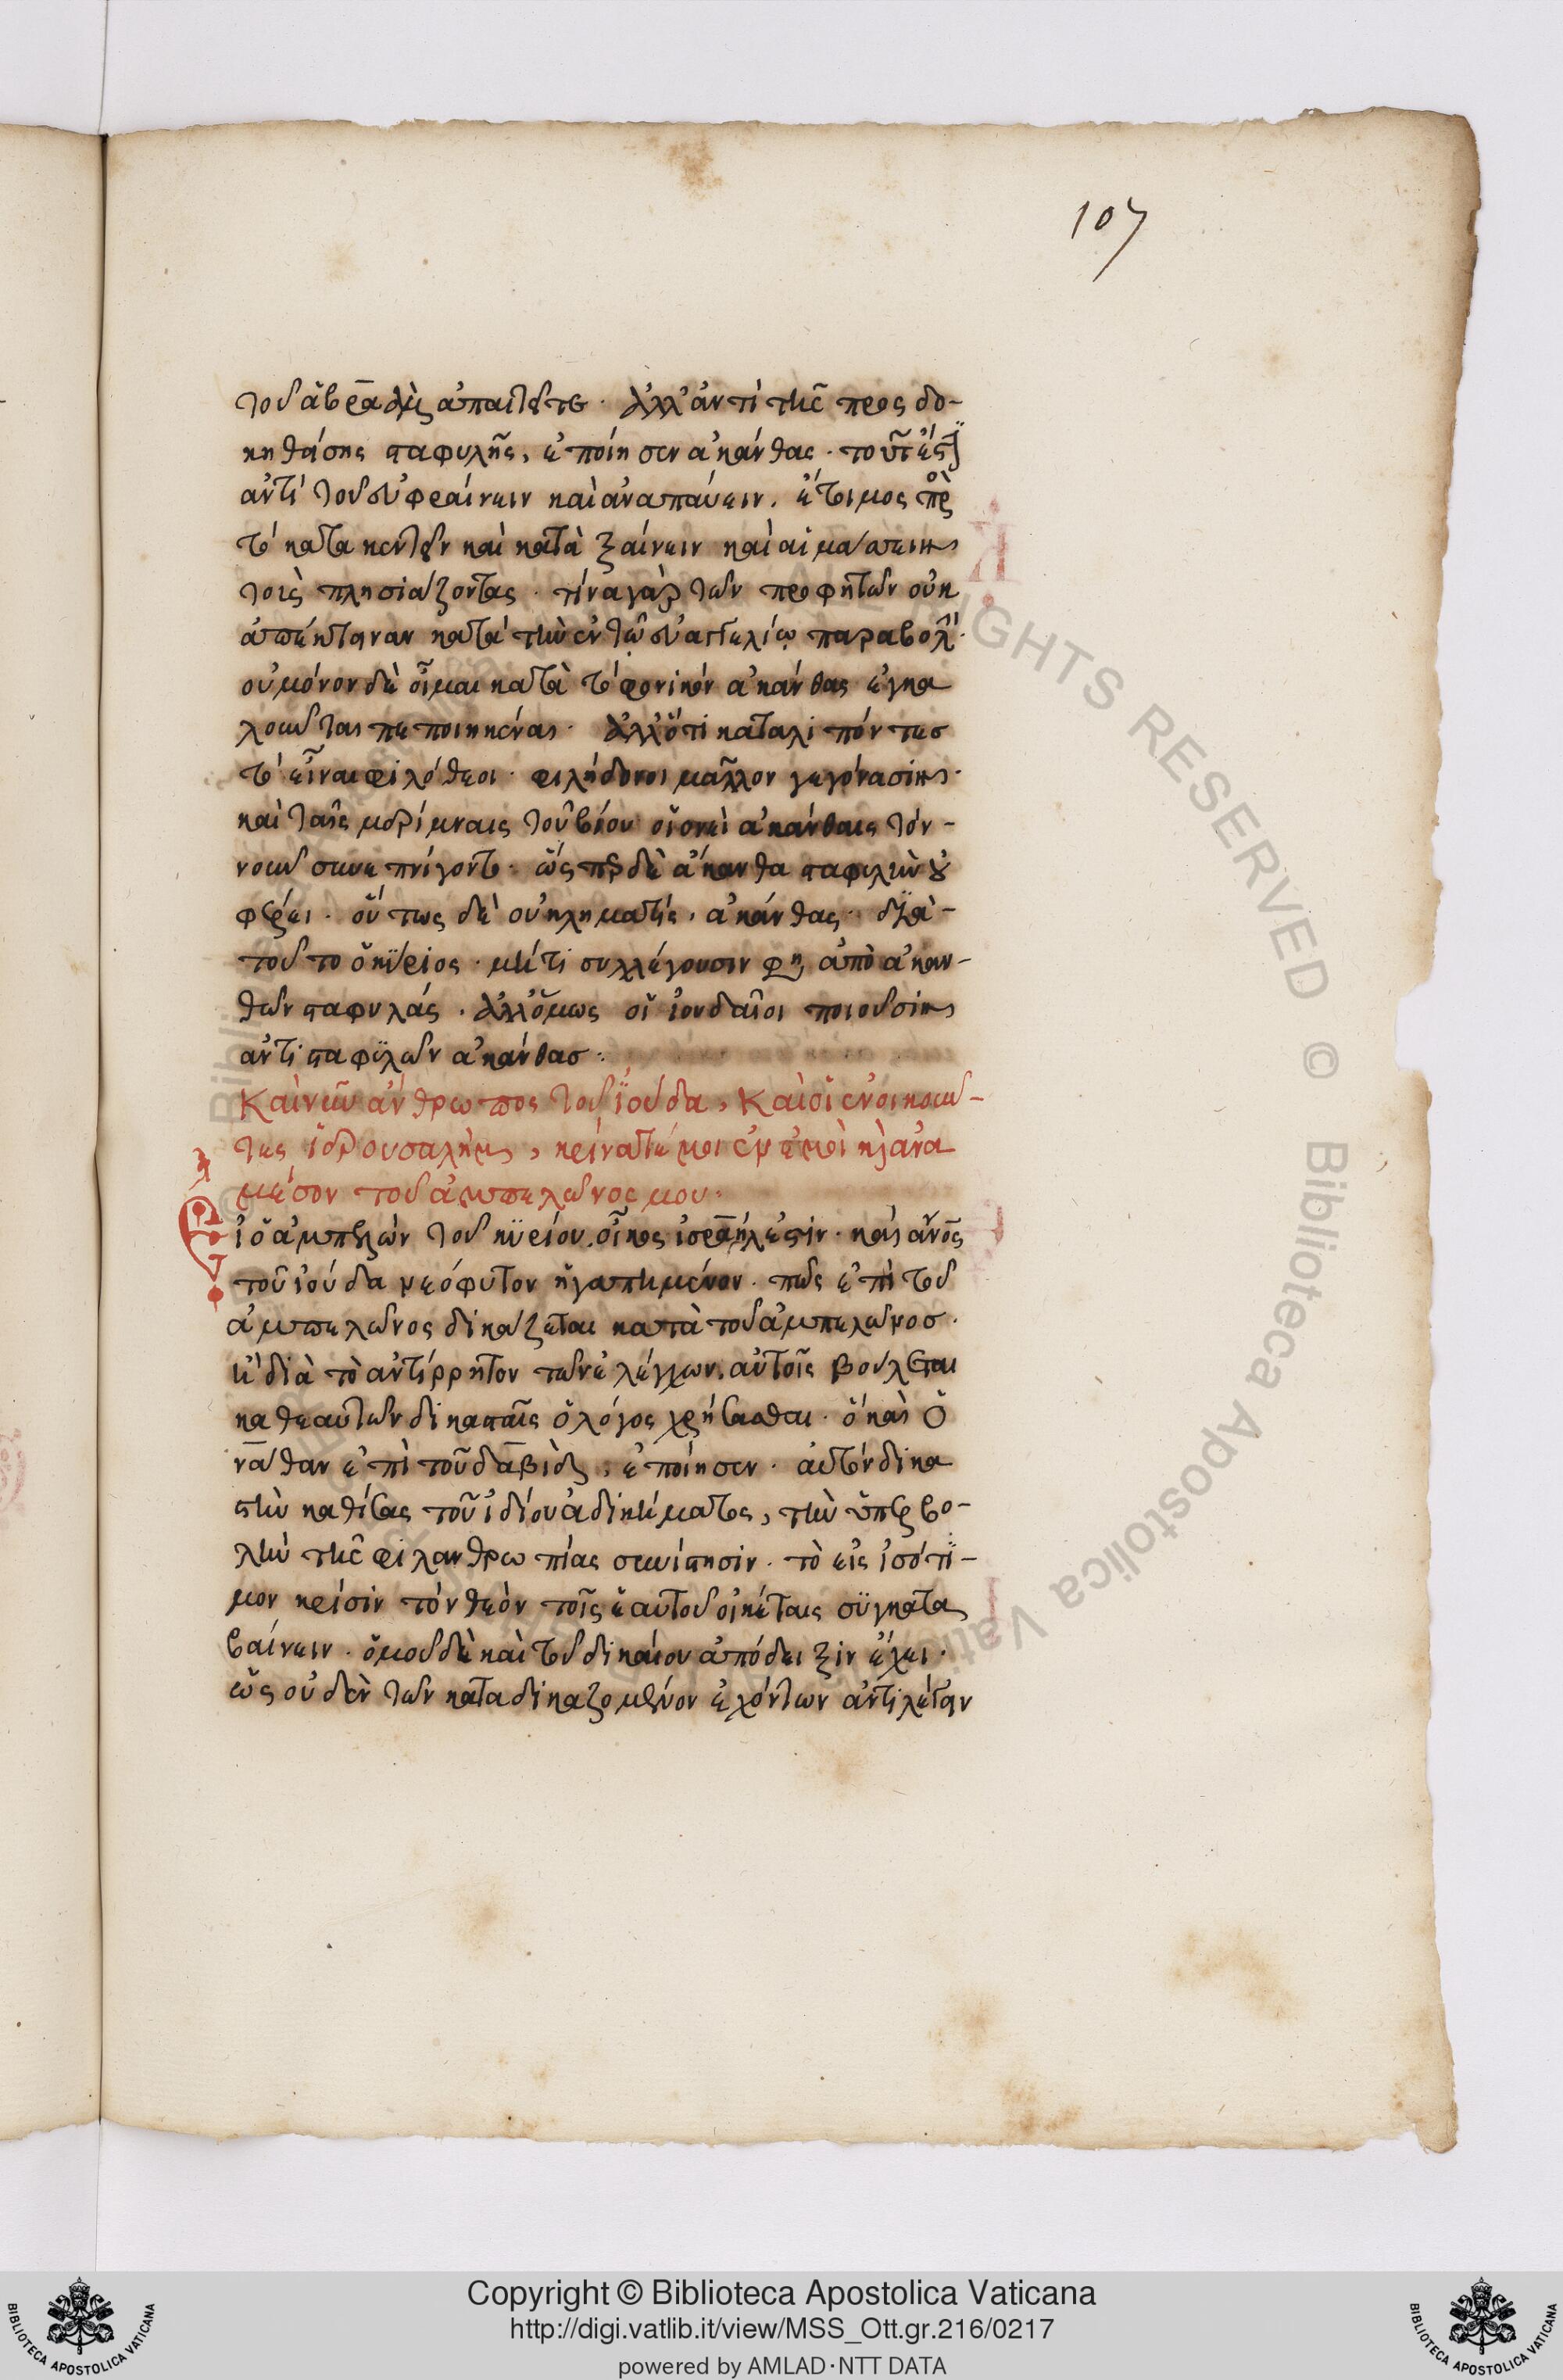 107
τοῦ ἀβραὰμ ἀπαιτεῖτε. ἀλλ' ἀντὶ τῆς προσδο-
κηθείσης σταφυλῆς, ἐποίησεν ἀκάνθας. τοῦτ' ἔστι
ἀντὶ τοῦ εὐφραίνειν καὶ ἀναπαύειν. ἕτοιμος πρὸς
τὸ κατακεντεῖν καὶ καταξαίνειν καὶ αἱμάττειν
τοὺς πλησιάζοντας. τίνα γὰρ τῶν προφητῶν οὐκ
ἀπέκτειναν κατὰ τὴν ἐν τῷ εὐαγγελίῳ παραβολή.
οὐ μόνον δὲ οἶμαι κατὰ τὸ φονικὸν ἀκάνθας ἐγκα
λοῦνται πεποιηκέναι. ἀλλ' ὅτι καταλιπόντες
τὸ εἶναι φιλόθεοι. φιλήδονοι μᾶλλον γεγόνασιν.
καὶ ταῖς μερίμναις τοῦ βίου οἱονεὶ ἀκάνθαις τὸν-
νοῦν συνεπνίγοντο. ὥσπερ δὲ ἄκανθα σταφυλὴν οὐ
φέρει. οὕτως δὲ οὐ κληματὶς, ἀκάνθας. διὰ-
τοῦτο ὁ κύριος. μήτι συλλέγουσιν φη ἀπὸ ἀκαν-
θῶν σταφυλάς. ἀλλ' ὅμως οἱ ἰουδαῖοι ποιοῦσιν
ἀντὶ σταφυλῶν ἀκάνθας.
Καὶ νῦν ἄνθρωπος τοῦ ἰούδα, καὶ οἱ ἐνοικοῦν-
τες ἱερουσαλὴμ, κρίνατέ μοι ἐν ἐμοὶ καὶ ἀνα
μέσον τοῦ ἀμπελῶνος μου.
Εἰ ὁ ἀμπελὼν τοῦ κυρίου οἶκος ἰσραήλ ἐστιν. καὶ ἄνος
τοῦ ἰούδα νεόφυτον ἠγαπημένον. πῶς ἐπὶ τοῦ
ἀμπελῶνος δικάζεται κατὰ τοῦ ἀμπελῶνος.
ἢ διὰ τὸ ἀντίρρητον τῶν ἐλέγχων. αὐτοῖς βούλεται
καθ' ἑαυτῶν δικασταῖς ὁ λόγος χρήσασθαι. ὃ καὶ ὁ
νάθαν ἐπὶ τοῦ δαβὶδ, ἐποίησεν. αὐτὸν δικα
στὴν καθίσας τοῦ ἰδίου ἀδικήματος, τὴν ὑπερβο-
λὴν τῆς φιλανθρωπίας συνίστησιν. τὸ εἰς ἰσότι-
μον κρίσιν τὸν θεὸν τοῖς ἑαυτοῦ οἰκέταις συγκατα
βαίνειν. ὁμοῦ δὲ καὶ τοῦ δικαίου ἀπόδειξιν ἔχει.
ὡς οὐδὲν τῶν καταδικαζομένον ἐχόντων ἀντιλέγειν
Copyright © Biblioteca Apostolica Vaticana
http://digi.vatlib.it/view/MSS_Ott.gr.216/0217
powered by AMLAD·NTT DATA